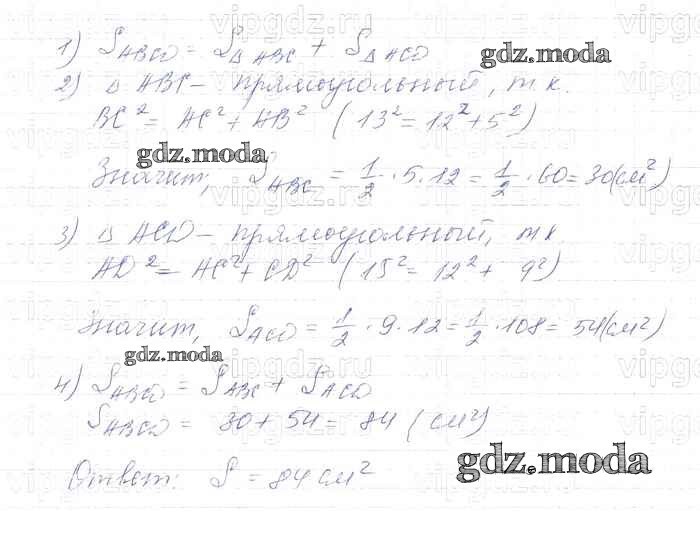 1) S ABCD = S △ ABC + S △ ACD
gdz.moda
2) △ ABC – прямоугольный, т.к.
BC² = AC² + AB² (13² = 12² + 5²)
gdz.moda
Значит, S ABC = 1/2 · 5 · 12 = 1/2 · 60 = 30 (см²)
3) △ ACD – прямоугольный, т.к.
AD² = AC² + CD² (15² = 12² + 9²)
gdz.moda
Значит, S ACD = 1/2 · 9 · 12 = 1/2 · 108 = 54 (см²)
gdz.moda
4) S ABCD = S ABC + S ACD
S ABCD = 30 + 54 = 84 (см²)
gdz.moda
Ответ: S = 84 см²